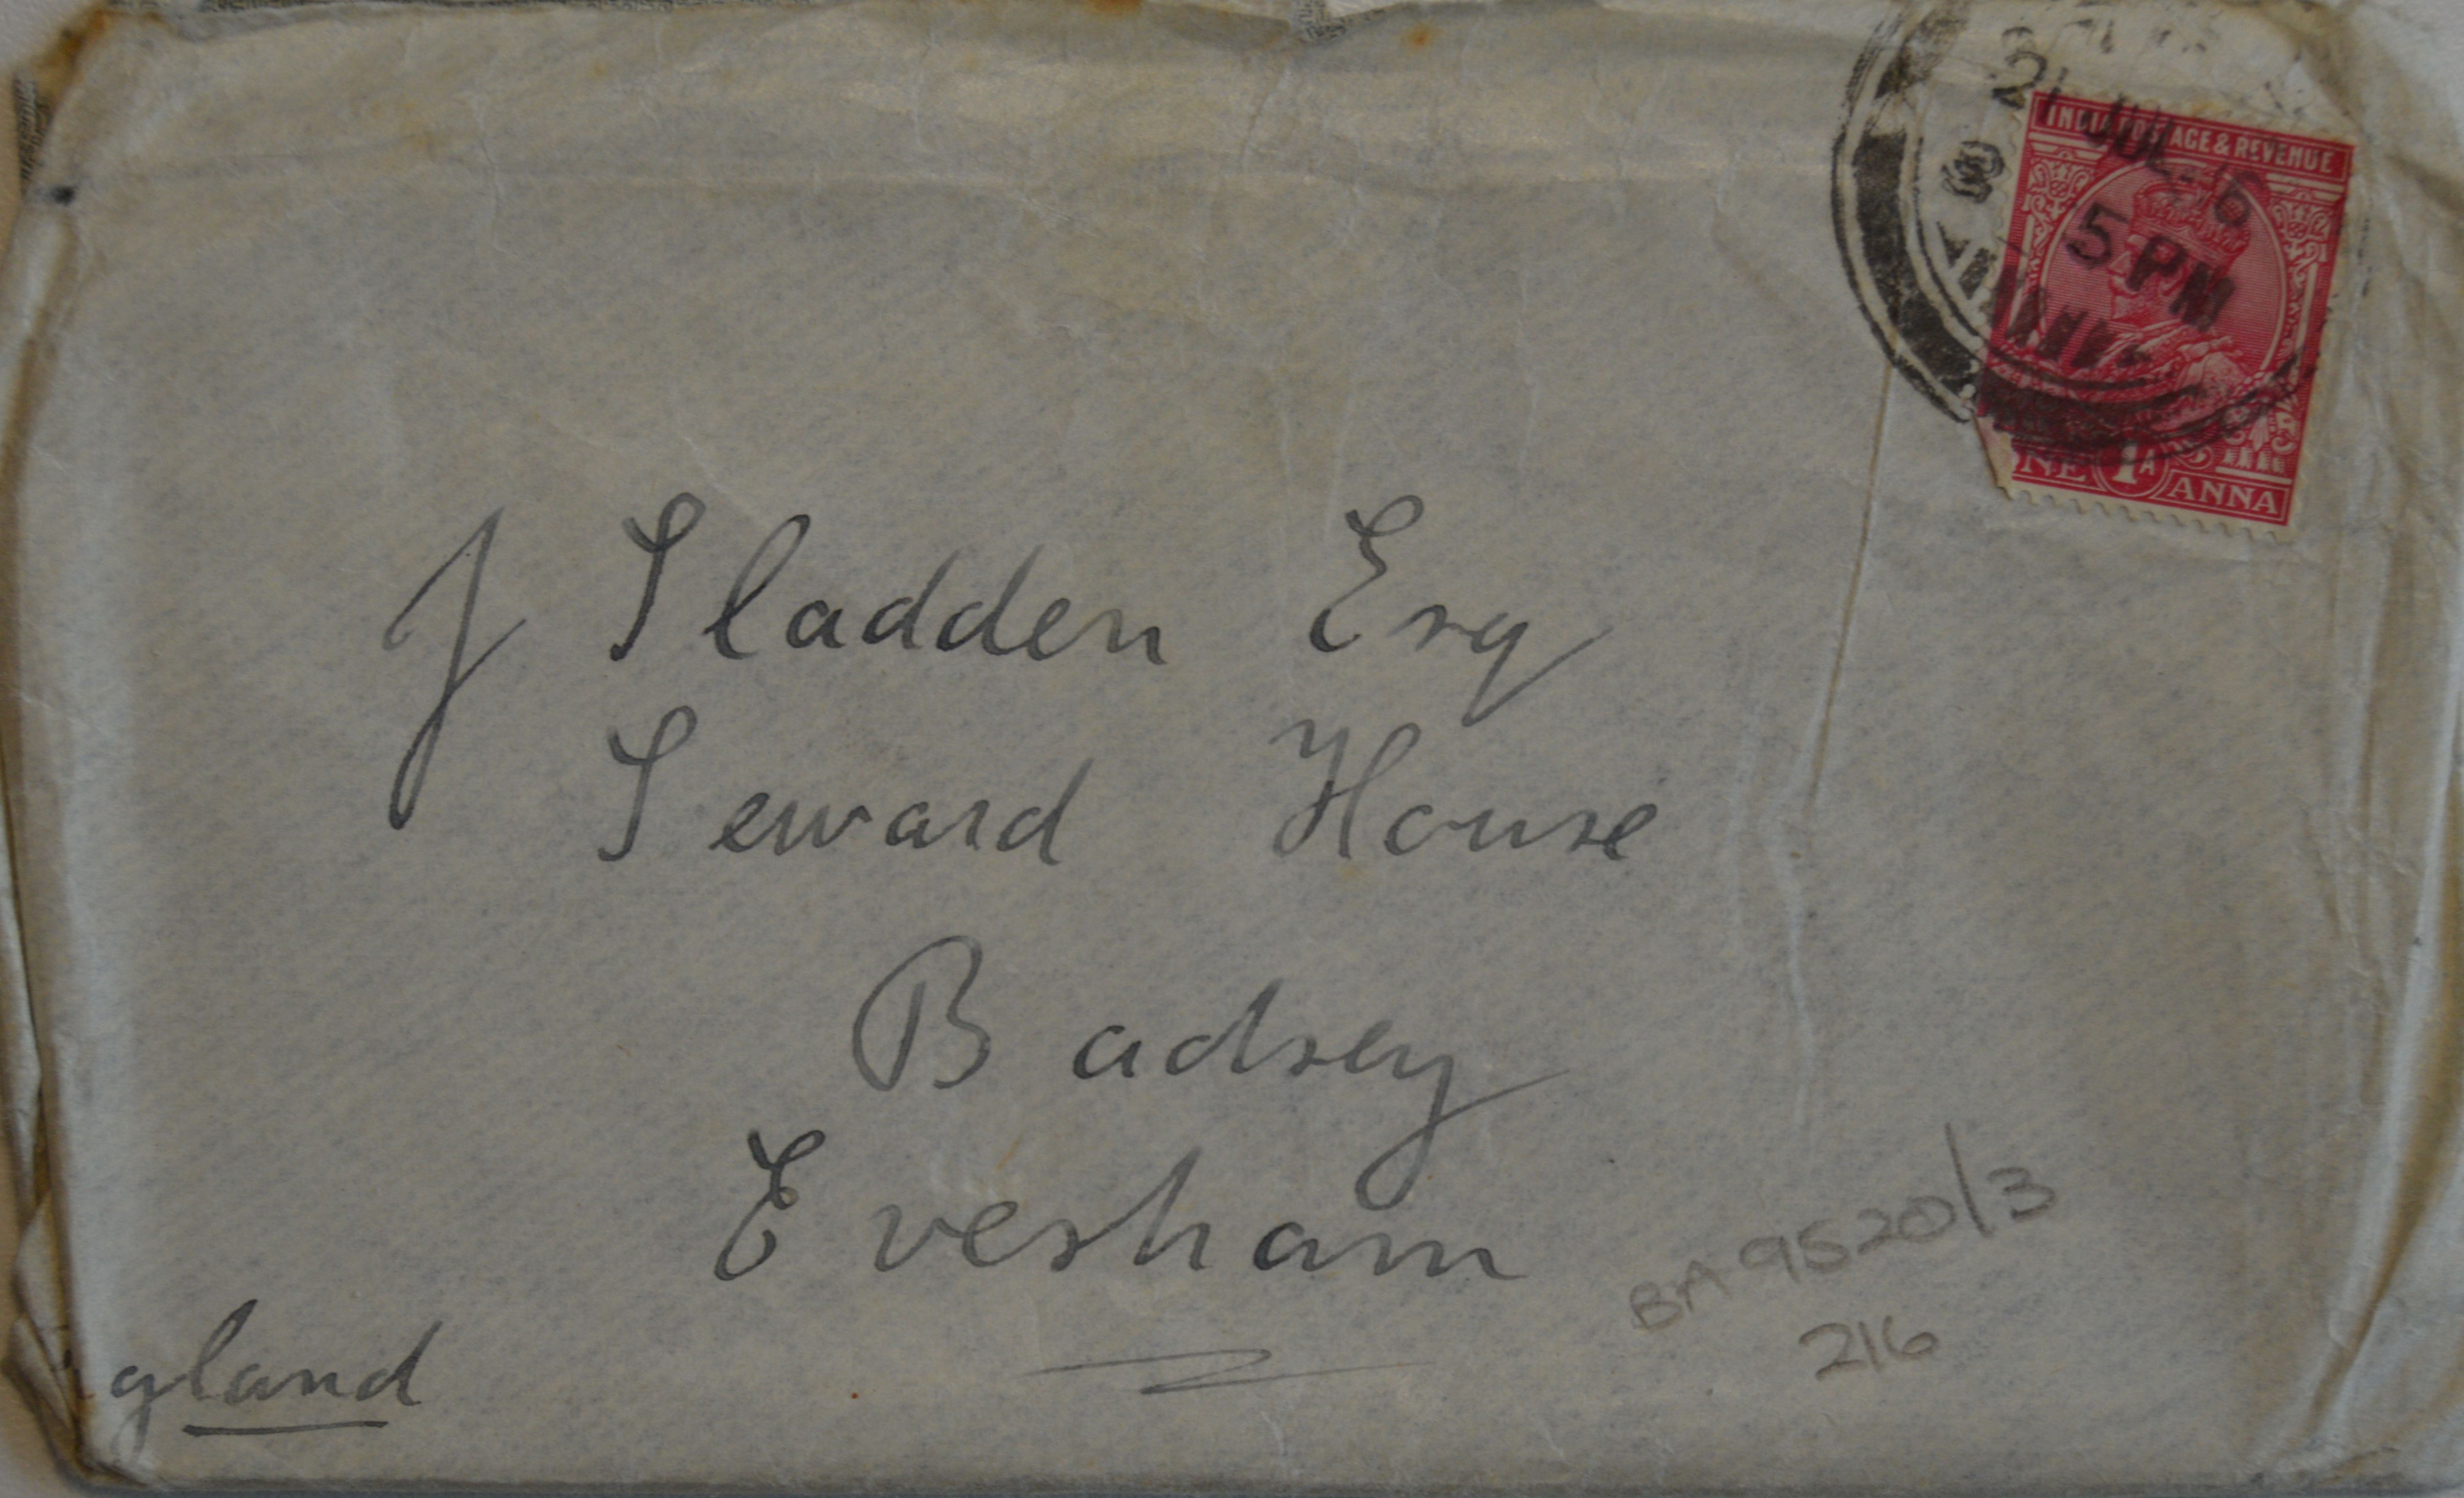 21 JUL. 16
5 PM
INDIA POSTAGE & REVENUE
ONE 1A ANNA
J Sladden Esq
Seward House
Badsey
Evesham
gland
BA 9520/3
216